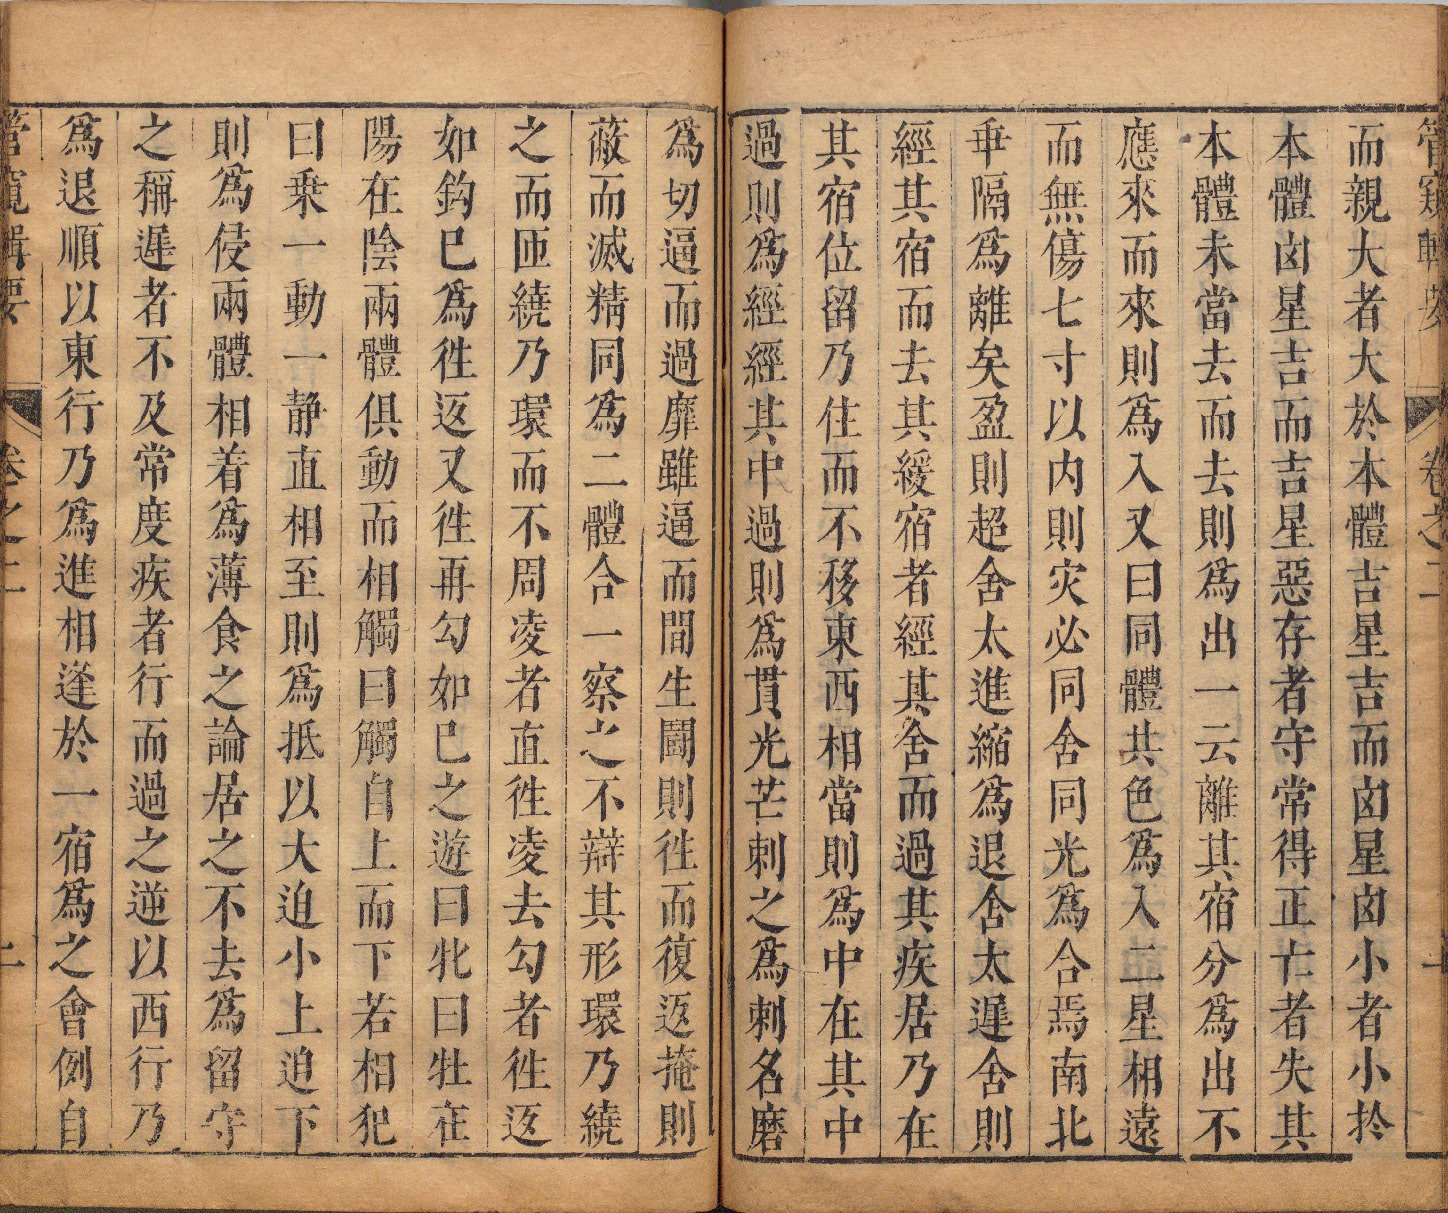 管窺輯要
卷之二
而親大者大於本體吉星吉而凶星凶小者小於
本體凶星吉而吉星惡存者守常得正亡者失其
本體未當去而去則爲出一云離其宿分爲出不
應來而來則爲入又曰同體共色爲入二星相遠
而無傷七寸以内則灾必同舍同光爲合焉南北
乖隔爲離矣盈則超舍太進縮爲退舍太遲舍則
經其宿而去其緩宿者經其舍而過其疾居乃在
其宿位留乃住而不移東西相當則爲中在其中
過則爲經經其中過則爲貫光芒刺之爲刺名磨
爲切逼而過靡雖逼而間生鬬則徃而復返掩則
蔽而滅精同爲二體合一察之不辯其形環乃繞
之而匝繞乃環而不周凌者直徃凌去勾者徃返
如鈎巳爲徃返又徃再勾如巳之遊曰牝曰牡在
陽在陰兩體俱動而相觸曰觸自上而下若相犯
曰乗一動一静直相至則爲抵以大迫小上迫下
則爲侵兩體相着爲薄食之論居之不去爲留守
之稱遲者不及常度疾者行而過之逆以西行乃
爲退順以東行乃爲進相逢於一宿爲之會例自
管窺輯要
卷之二
二